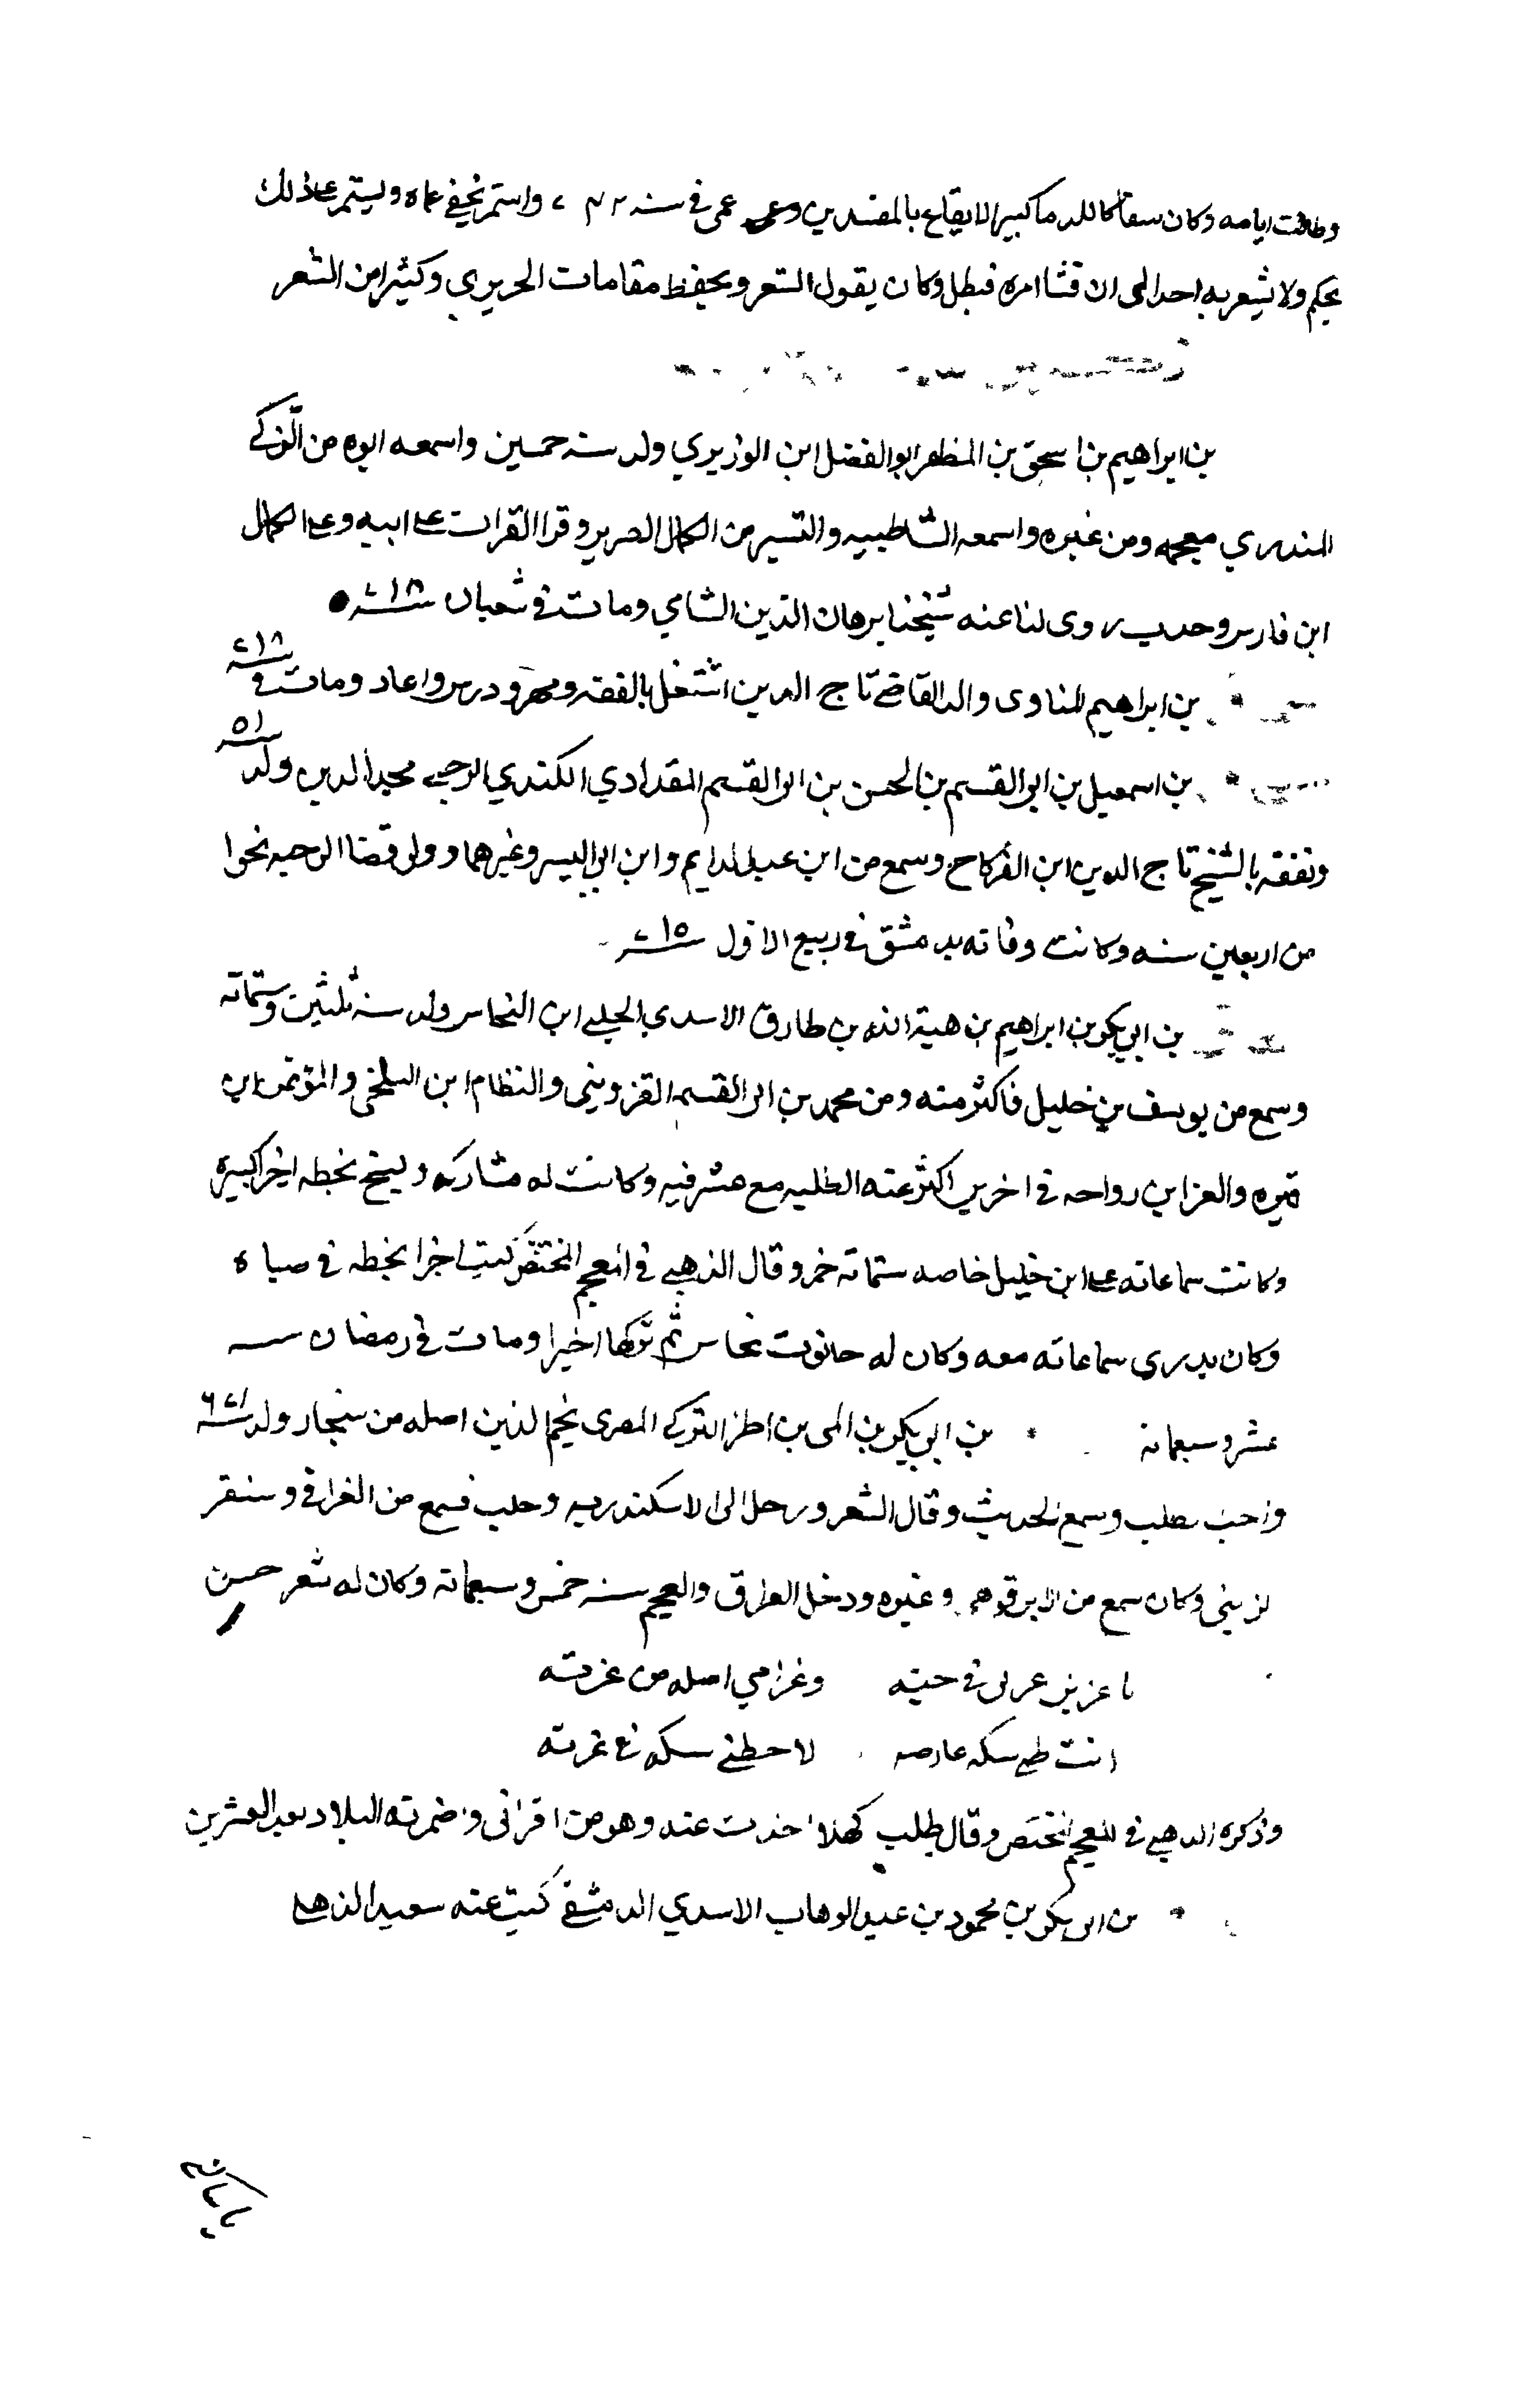 وطالت ايامه وكان سفاكا للدما كثير الايقاع بالمفسدين وعمى في سنه واستمر يخفي عماه ويستمر على ذلك
يحكم ولا يشعر به احد الى ان فشا امره فبطل وكان يقول الشعر ويحفظ مقامات الحريري وكثيرا من الشعر
بن ابراهيم بن اسحق بن المظفر ابو الفضل ابن الوزيري ولد سنه خمسين واسمعه ابوه من الزكي
المنذري معجمه ومن غيره واسمعه الشاطبيه والتيسير من الكمال الضرير وقرا القرات على ابيه وعلى الكمال
ابن فارس وحدث روى لنا عنه شيخنا برهان الدين الشامي ومات في شعبان سنة ٧١٨
بن ابراهيم المناوى والد القاضي تاج الدين اشتغل بالفقه ومهر ودرس واعاد ومات في سنة ٧١٨
بن اسمعيل بن ابي القسم بن الحسن بن ابي القسم المقدادي الكندي الرحبي مجد الدين ولد سنة ٥١
وتفقه بالشيخ تاج الدين ابن الفركاح وسمع من ابن عبد الدايم وابن ابي اليسر وغيرهما وولى قضا الرحبه نحوا
من اربعين سنه وكانت وفاته بدمشق في ربيع الاول سنة ٧١٥
بن ابي بكر بن ابراهيم بن هبة الله بن طارق الاسدي الحلبي ابن النحاس ولد سنة ثلثين وستماته
وسمع من يوسف بن خليل فاكثر منه ومن محمد بن ابي القسم القزويني والنظام ابن البلخي والمؤتمن ابن
قميره والعز ابن رواحه في اخرين اكثر عنه الطلبه مع عسر فيه وكانت له مشاركه ونسخ بخطه اجزا كثيره
وكانت سماعاته على ابن خليل خاصه ستماته جزو قال الذهبي في المعجم المختص كتب اجزا بخطه في صباه
وكان يدرى سماعاته معه وكان له حانوت نحاس ثم تركها اخيرا ومات في رمضان سنه
عشر وسبعماته بن ابي بكر بن المى بن اطز التركي المصرى نجم الدين اصله من سنجار ولد سنة ٦٧١
واحب وسمع الحديث وقال الشعر ورحل الى الاسكندريه وحلب فسمع من الغرافي وسنقر
الزيني وكان سمع من الابرقوهي وغيره ودخل العراق والعجم سنه خمس وسبعماته وكان له شعر حسن
وغرامي اصله من
انت
وذكره الذهبي في المعجم المختص وقال طلب كهلا اخذت عنه وهو من اقراني واضمرته البلاد بعد العشرين
بن ابى بكر بن محمود بن عبد الوهاب الاسدي الدمشقي كتب عنه سعيد الذهلي